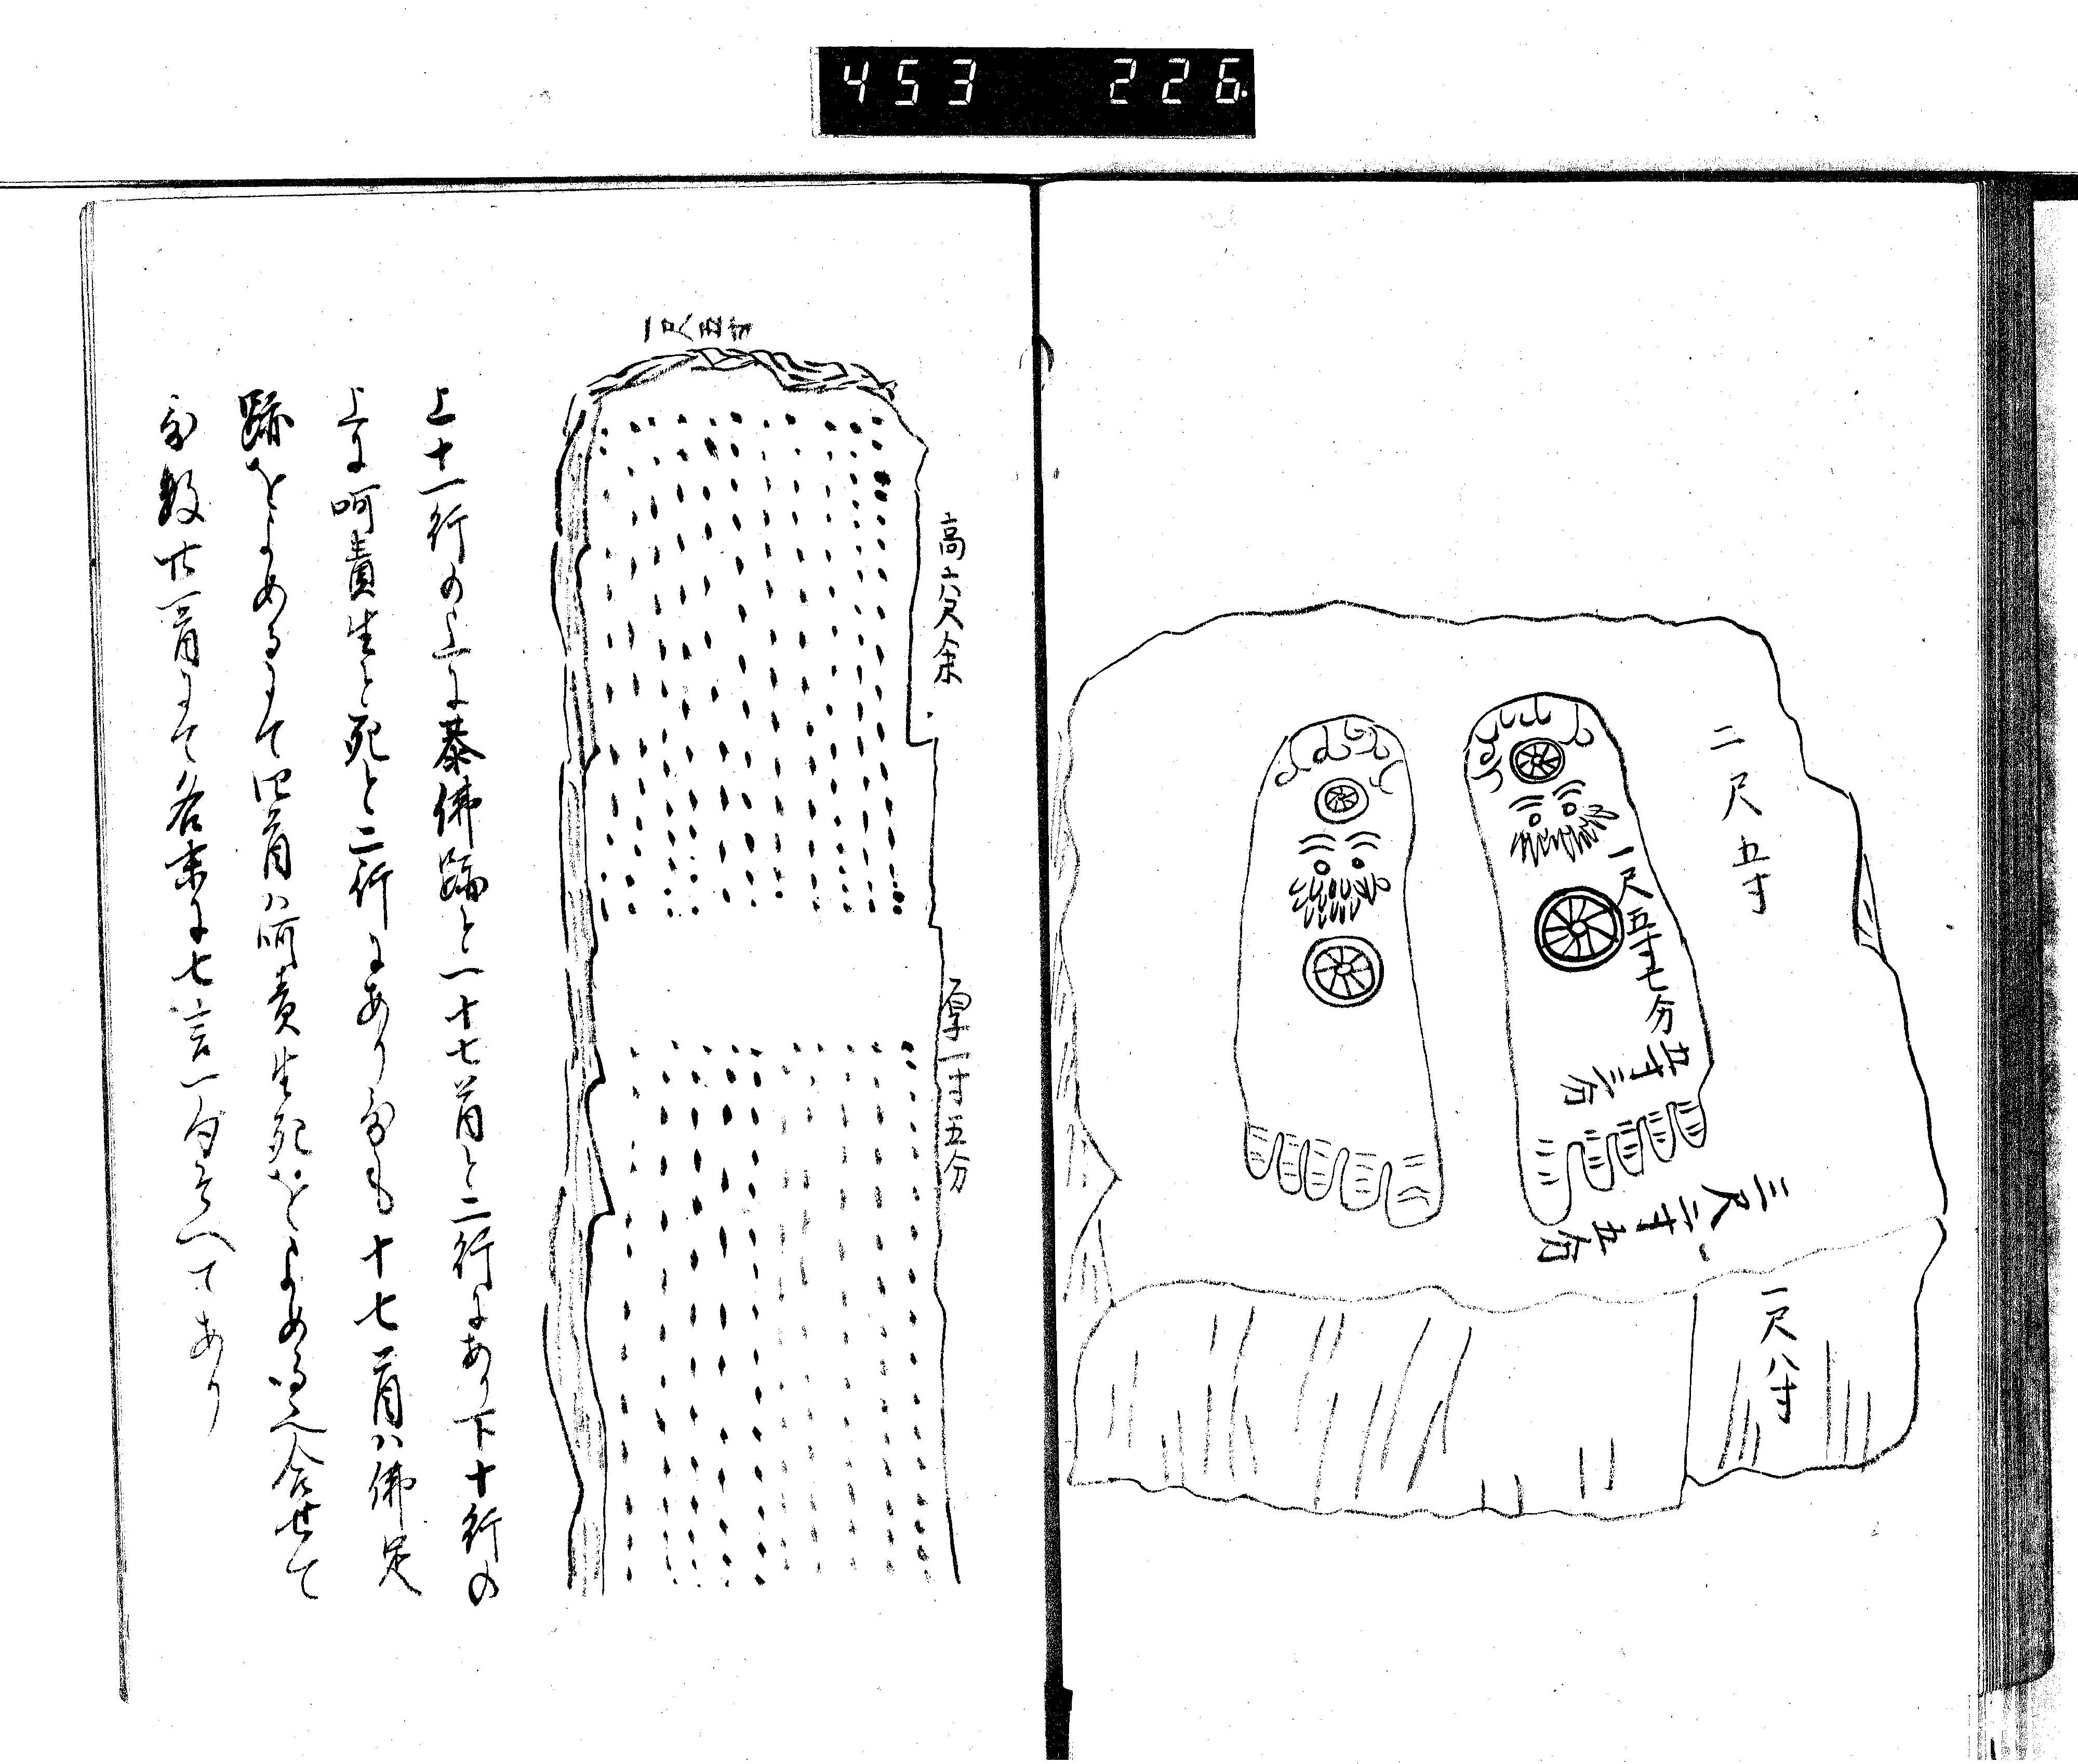 453 226.
二尺五寸
一尺五寸七分
五寸三分
三尺二寸五分
一尺八寸
高六尺余
厚一寸五分
一尺五寸
上十一行の上に恭佛跡と一十七首と二行にあり下十行の
上に呵責生と死と二行にあり哥も十七首ハ佛足
跡をよめるにて四首ハ呵責生死をよめる合せて
哥数廿一首にて各末に七言一句そへてあり